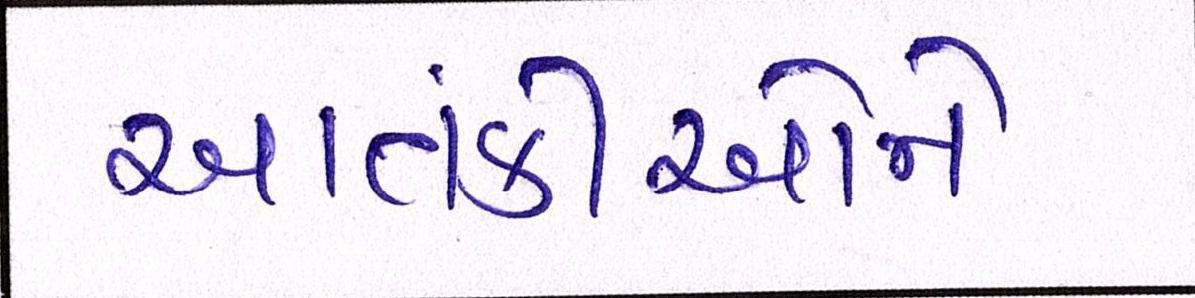 આતંકીઓને